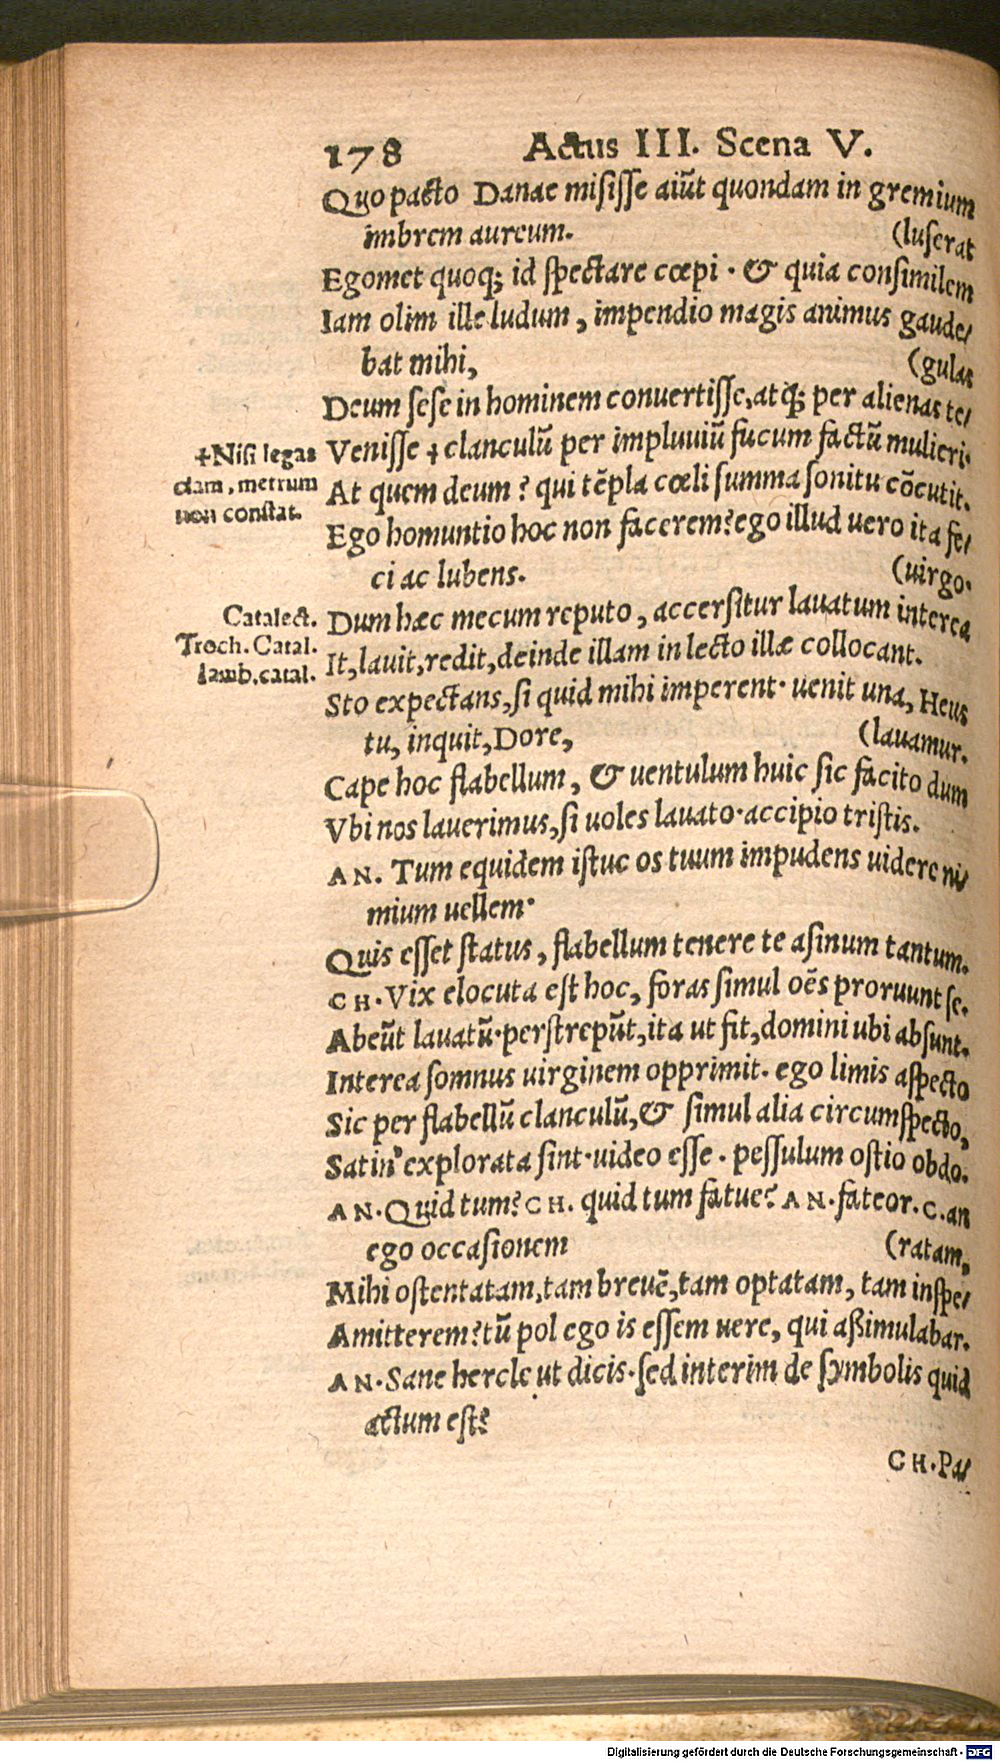 178 Actus III. Scena V.
Quo pacto Danae misisse aiũt quondam in gremium
imbrem aureum. (luserat
Egomet quoq; id spectare cœpi · & quia consimilem
Iam olim ille ludum, impendio magis animus gaude/
bat mihi, (gulas
Deum sese in hominem convertisse, atq; per alienas te/
+Nisi legas
Venisse + clanculũ per impluviũ fucum factũ mulieri·
clam, metrum
At quem deum? qui tẽpla cœli summa sonitu cõcutit.
non constat.
Ego homuntio hoc non facerem? ego illud vero ita fe/
ci ac lubens. (virgo·
Catalect.
Dum hæc mecum reputo, accersitur lavatum interea
Troch. Catal.
It, lavit, redit, deinde illam in lecto illæ collocant.
Iamb. catal.
Sto expectans, si quid mihi imperent· uenit una, Heus
tu, inquit, Dore, (lauamur.
Cape hoc flabellum, & uentulum huic sic facito dum
Vbi nos lauerimus, si uoles lauato· accipio tristis.
AN. Tum equidem istuc os tuum impudens uidere ni/
mium uellem·
Quis esset status, flabellum tenere te asinum tantum.
CH. Vix elocuta est hoc, foras simul oẽs proruunt se.
Abeũt lauatũ· perstrepũt, ita ut fit, domini ubi absunt.
Interea somnus uirginem opprimit. ego limis aspecto
Sic per flabellũ clanculũ, & simul alia circumspecto,
Satin' explorata sint· uideo esse. pessulum ostio obdo.
AN. Quid tum? CH. quid tum fatue? AN. fateor. C. an
ego occasionem (ratam,
Mihi ostentatam, tam breuẽ, tam optatam, tam inspe/
Amitterem? tũ pol ego is essem uere, qui aßimulabar.
AN. Sane hercle ut dicis· sed interim de symbolis quid
actum est?
CH. Pa/
Digitalisierung gefördert durch die Deutsche Forschungsgemeinschaft - DFG